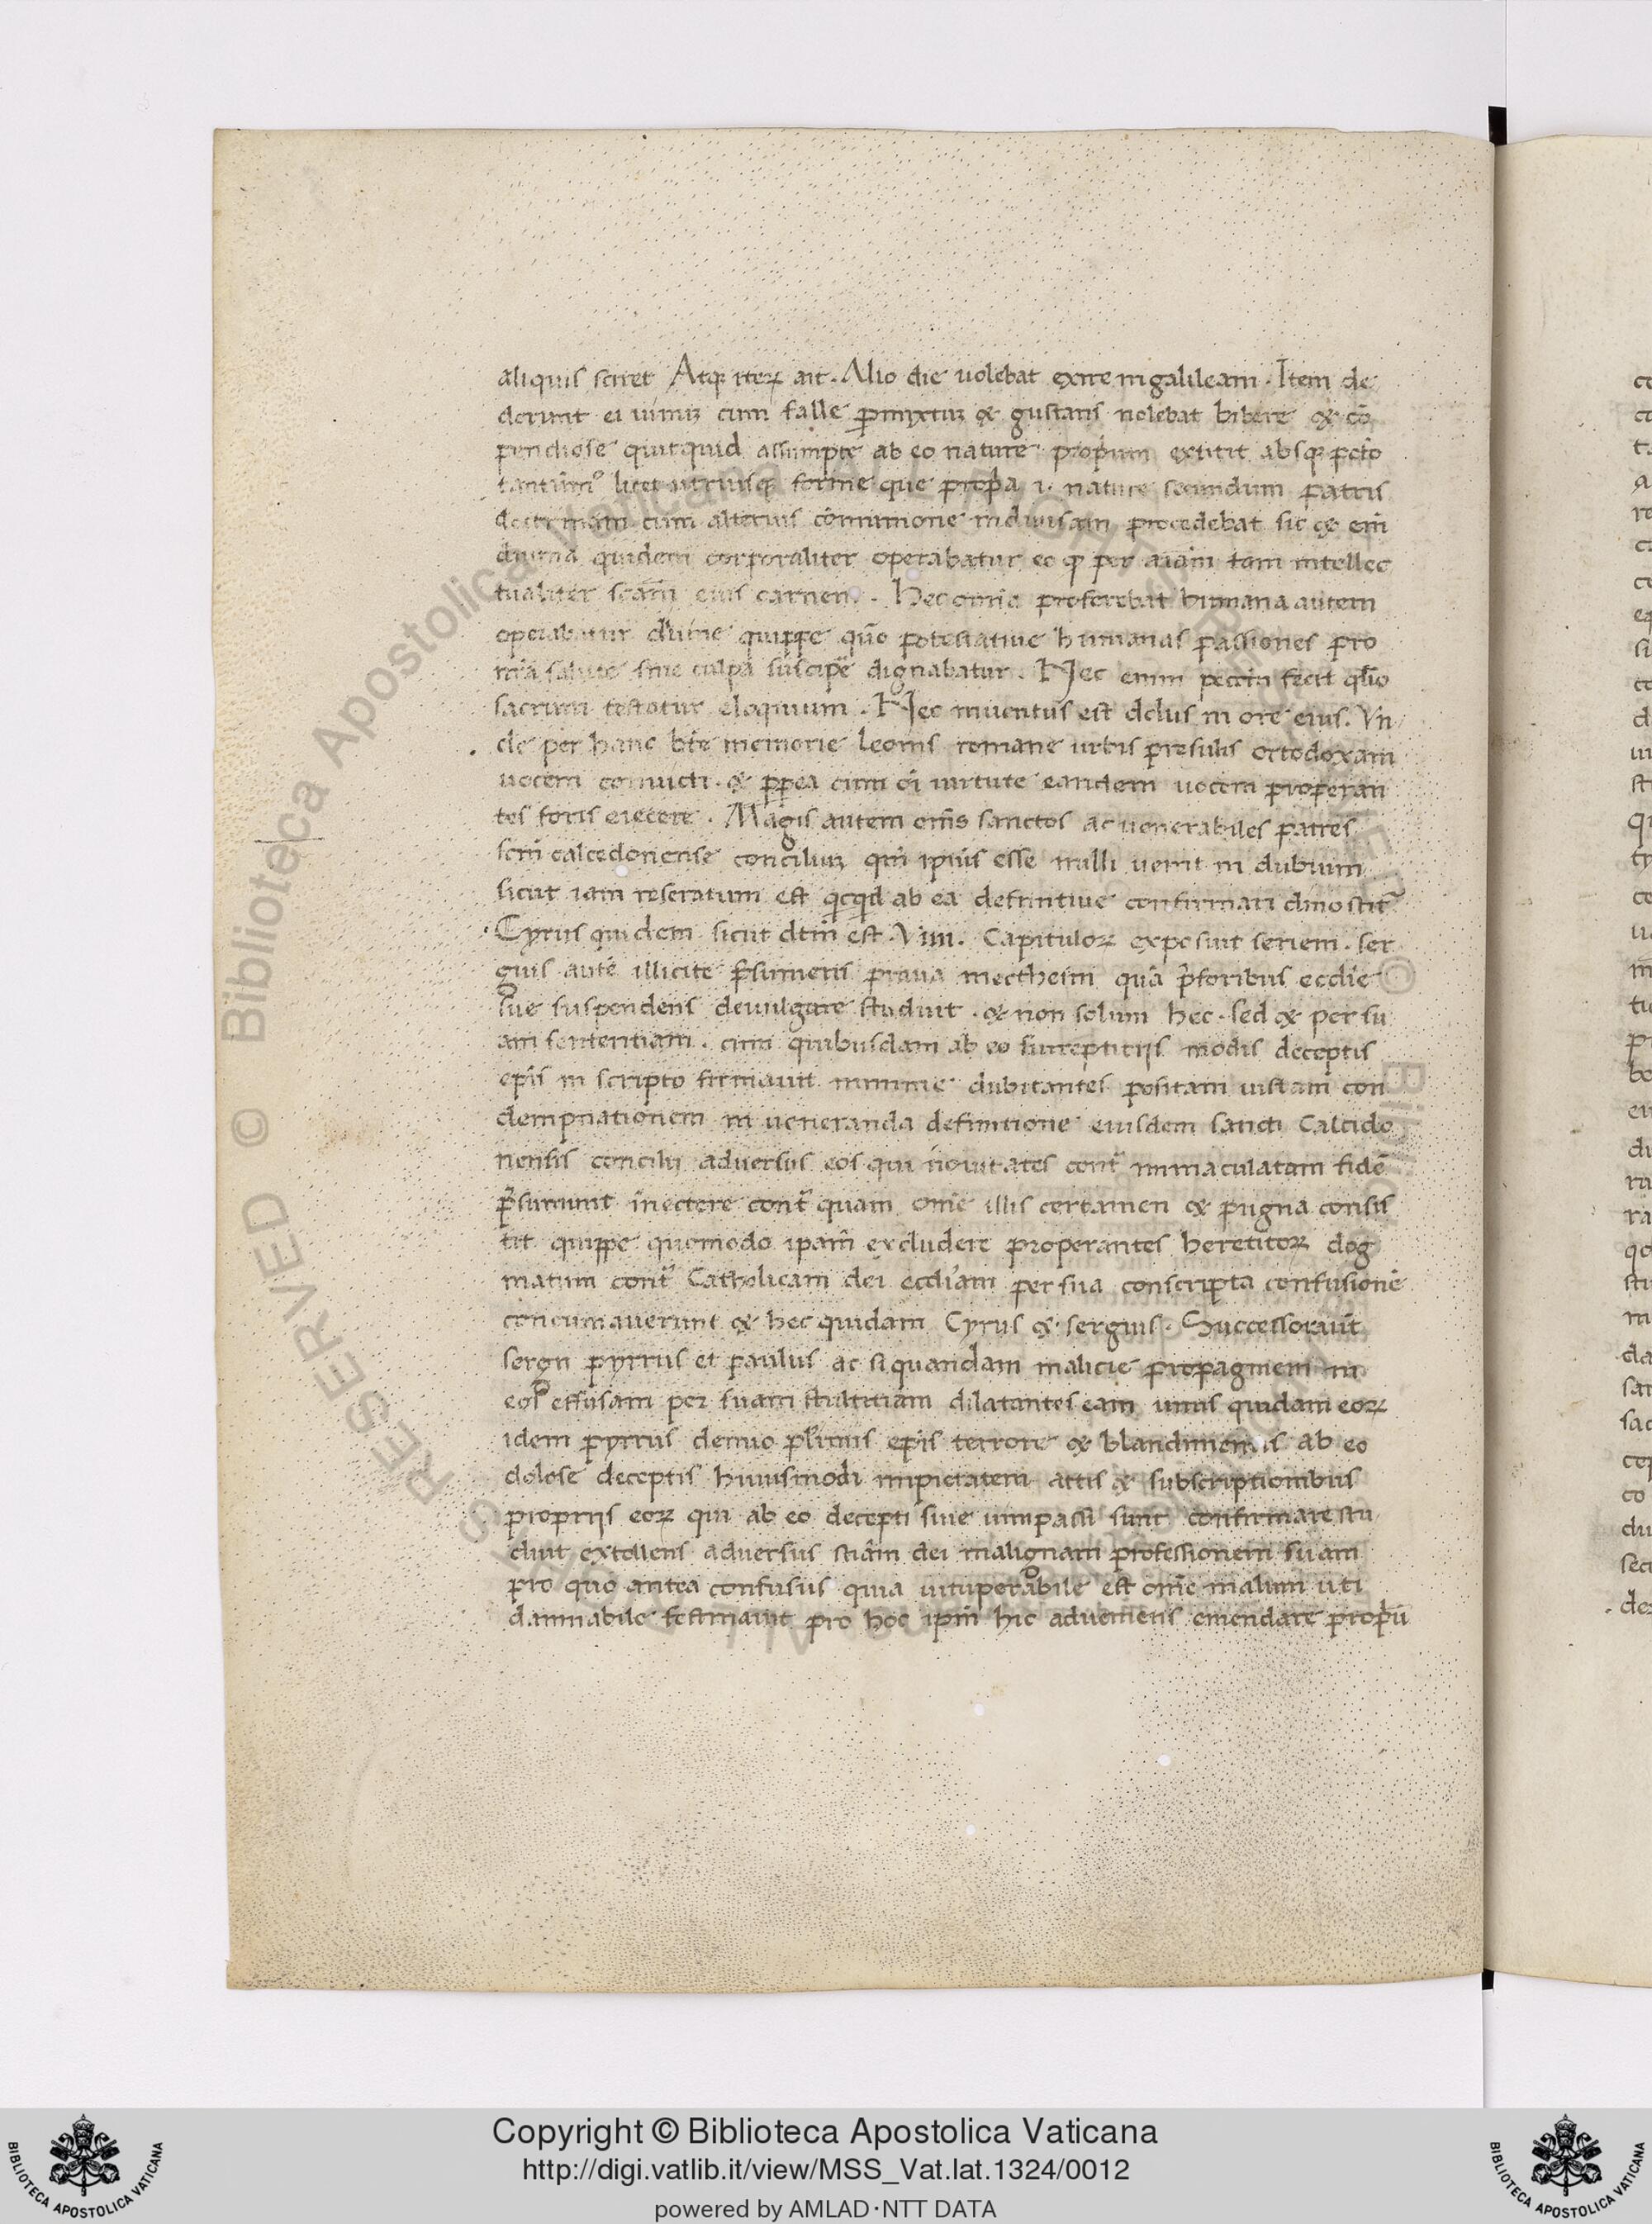 aliquis sciret Atq; iterꝝ ait. Alio die uolebat exire in galileam. Item de
derunt ei uinuꝫ cum falle ꝑmixtuꝫ & gustans nolebat bibere & cō
pendiose quicquid assumpte ab eo nature propriuͫ extitit absq; pctō
tantūmo licet utriusq; forme que propria .i. nature secundum patris
doctrinam cum alterius cōmunione indiuisam procedebat sic & eni
diuina quidem corporaliter operabatur eo ꝙ per aīam tam intellec
tualiter scām eius carnem. Hec omia proferebat humana autem
operabatur diuine quippe quō potestatiue humanas passiones pro
nrā salute sine culpa suscipe dignabatur. Nec enim peccm̄ fecit
sacrum testatur eloquium. Nec inuentus est dolus in ore eius. Vn
de per hanc bte memorie leonis romane urbis presulis ortodoxam
uocem conuicti. & ꝑꝑea cum oī uirtute eandem uocem properan
tes foris eiecere. Magis autem oms sanctos ac uenerabiles patres
scm̄ calcedonense conciliuꝫ qm̄ ipius esse nulli uenit in dubium
sicut iam reseratum est qcqd ab ea definitiue confirmari dinoscit
Cyrus quidem sicut dtm̄ est. Viiii. Capitulorꝝ exposuit seriem. ser
gius autē illicite p̄sumens praua mectheim quā p̄foribus ecclie
sue suspendens deuulgare studuit. & non solum hec. sed & per su
am sententiam. cum quibusdam ab eo surreptitijs modis deceptis
epis in scripto firmauit minime dubitantes positam iustam con
dempnationem in ueneranda definitione eiusdem sancti Calcido
nensis concilij aduersus eos qui nouitates cont̄ immaculatam fidē
p̄sumunt inectere cont̄ quam omē illis certamen & pugna consis
tit quippe quomodo ipam̄ excludere properantes hereticorꝝ dog
matum cont̄ Catholicam dei eccliam per sua conscripta confusionē
concumauerunt & hec quidam Cyrus & sergius. Successorūt
sergii pyrrus et paulus ac si quandam malicie propaginem in
eos effusam per suam stultitiam dilatantes eam unus quidam eorꝝ
idem pyrrus denuo plrimis epis terrore & blandimentis ab eo
dolose deceptis huiusmodi impietatem actis & subscriptionibus
proprijs eorꝝ qui ab eo decepti siue uimpassi sunt confirmare stu
duit extollens aduersus sciam dei malignam professionem suam
pro quo antea confusus quia uituperabile est omē malum uti
damnabile festinauit pro hoc ipm̄ hic adueniens emendare propriū
Copyright © Biblioteca Apostolica Vaticana
http://digi.vatlib.it/view/MSS_Vat.lat.1324/0012
powered by AMLAD·NTT DATA